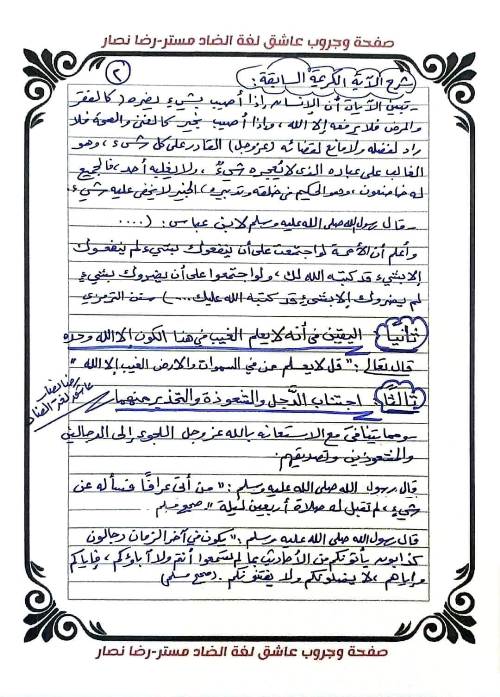 صفحة وجروب عاشق لغة الضاد مستر-رضا نصار
٢
شرح الآية الكريمة السابقة:
- تبين الآيات أن الإنسان إذا أصيب بشيء يضره (كالفقر
والمرض فلا يرفعه إلا الله، وإذا أصيب بخير كالغنى والصحة فلا
راد لفضله ولا مانع لقضائه (عز وجل) القادر على كل شيء، وهو
الغالب على عباده الذي لا يعجزه شيء، ولا يغلبه أحد، فالجميع
له خاضعون، وهو الحكيم في خلقه وتدبيره) الخبير لا يخفى عليه شيء.
- قال رسول الله صلى الله عليه وسلم لابن عباس: (....
واعلم أن الأمة لو اجتمعت على أن ينفعوك بشيء لم ينفعوك
إلا بشيء قد كتبه الله لك، ولو اجتمعوا على أن يضروك بشيء
لم يضروك إلا بشيء قد كتبه الله عليك...) سنن الترمذي
ثانيًا: اليقين في أنه لا يعلم الغيب في هذا الكون إلا الله وحده
قال تعالى: "قل لا يعلم من في السموات والأرض الغيب إلا الله"
ثالثًا: اجتناب الدَّجل والشعوذة والتحذير منهما
رضا نصار
عاشق لغة الضاد
- ومما يتنافى مع الاستعانة بالله عز وجل اللجوء إلى الدجالين
والمشعوذين وتصديقهم.
قال رسول الله صلى الله عليه وسلم: "من أتى عرافًا فسأله عن
شيء، لم تقبل له صلاة أربعين ليلة" صحيح مسلم.
قال رسول الله صلى الله عليه وسلم: "يكون في آخر الزمان دجالون
كذابون يأتونكم من الأحاديث بما لم تسمعوا أنتم ولا آباؤكم، فإياكم
وإياهم، لا يضلونكم ولا يفتنونكم. (صحيح مسلم)
صفحة وجروب عاشق لغة الضاد مستر-رضا نصار